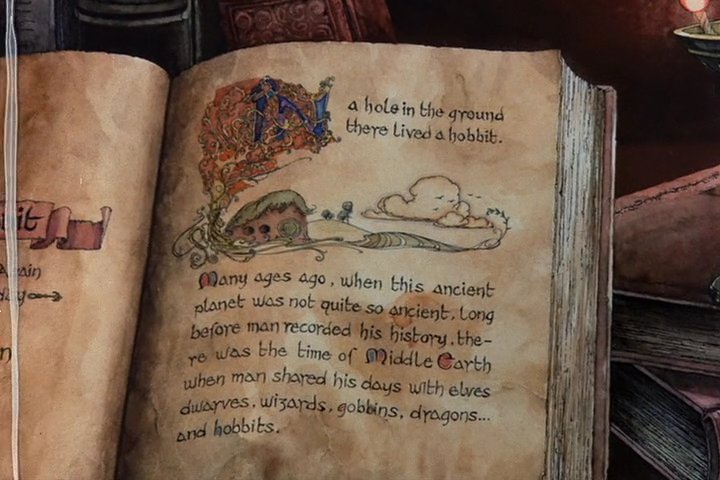 IN
a hole in the ground
there lived a hobbit.
Many ages ago, when this ancient
planet was not quite so ancient, long
before man recorded his history, the-
re was the time of Middle Earth
when man shared his days with elves
dwarves, wizards, gobbins, dragons...
and hobbits.